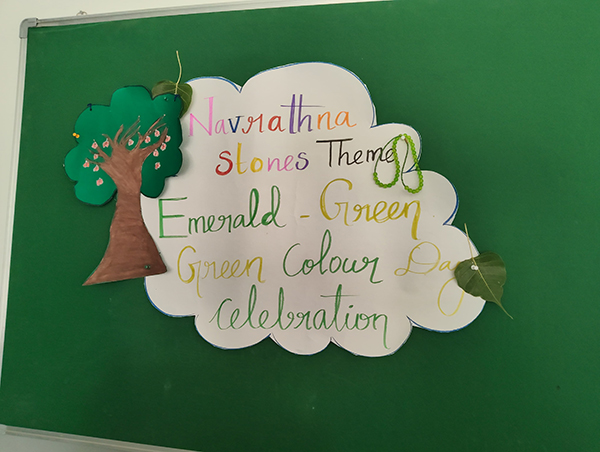 Navrathna
stones Theme
Emerald - Green
Green Colour Day
celebration